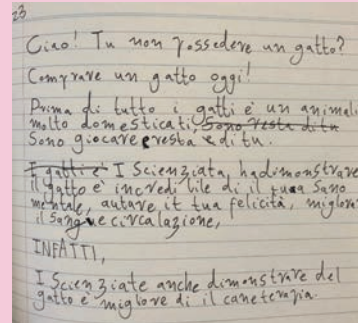 23
Ciao! Tu non possedere un gatto?
Comprare un gatto oggi!
Prima di tutto i gatti è un animal
molto domesticati, Sono resta di tu
Sono giocare e resta e di tu.
I gatti è I Scienziata, hadimonstrare
il gatto è incredibile di il tua Sano
mentale, autare it tua felicità, migliora
il sangue circalazione,
INFATTI,
I Scienziate anche dimonstrare del
gatto è migliore di il caneterapia.